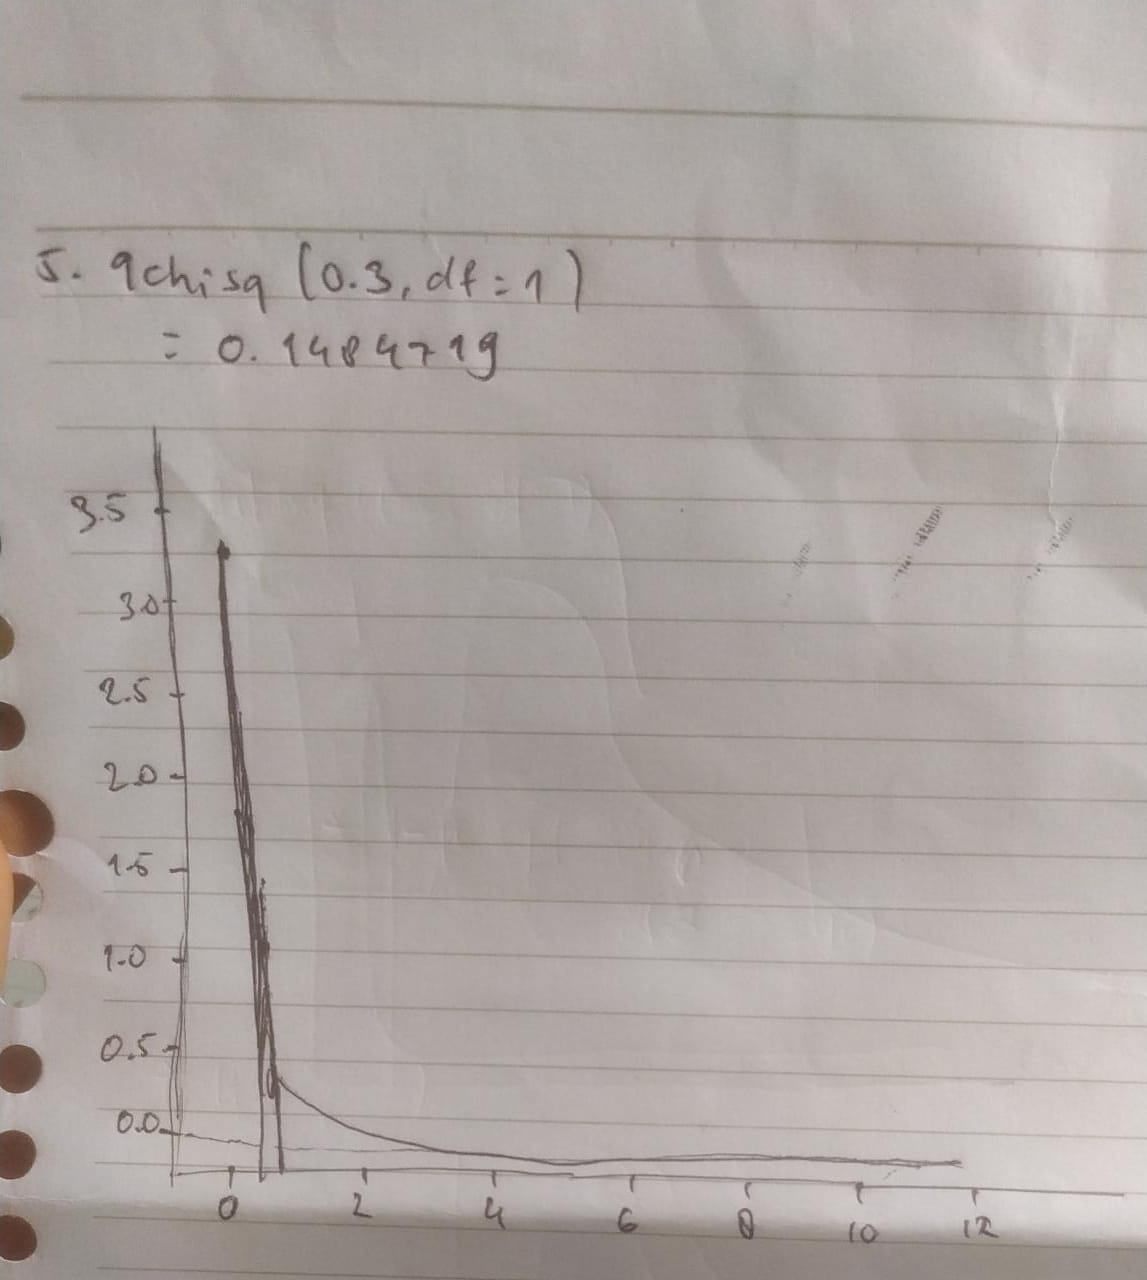 5. qchisq (0.3, df = 1)
= 0.1484719
3.5
3.0
2.5
2.0
1.5
1.0
0.5
0.0
0 2 4 6 8 10 12